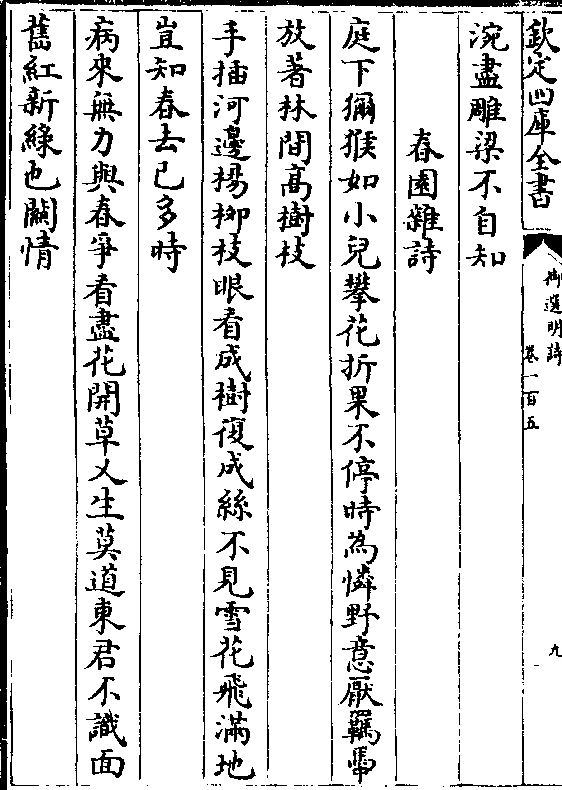 欽定四庫全書
御選明詩
卷一百五
九
涴盡雕梁不自知
春園雜詩
庭下獮猴如小兒攀花折果不停時為憐野意厭羈馽
放著林間髙樹枝
手插河邊楊柳枝眼看成樹復成絲不見雪花飛滿地
豈知春去已多時
病來無力與春爭看盡花開草又生莫道東君不識面
舊紅新綠也關情